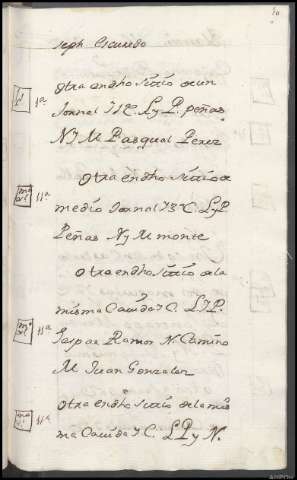 seph Escuredo
otra en dho sittio de un
Jornal Y 3C. L y P. peñas
N y M Pasqual Perez
11ª
otra en dho sittio de
medio Jornal Y 3ª C. L y P
11ª
Peñas N y M monte
otra en dho sittio de la
misma Cavida Y C. L y P.
11ª
Gaspar Ramon N. Camino
M. Juan Gonzalez
otra en dho sittio de la mis
11ª
ma Cavida Y C. L P y N.